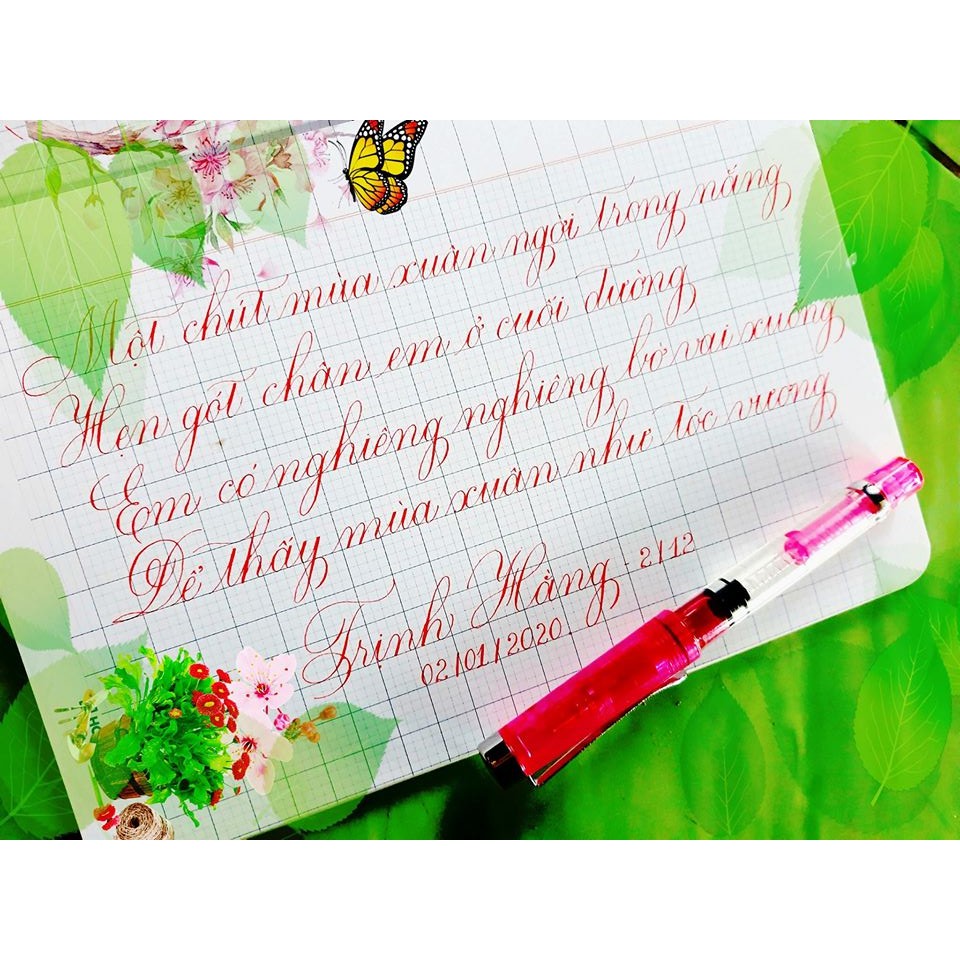 Một chút mùa xuân ngợi trong nắng
Hẹn gót chân em ở cuối đường
Em có nghiêng nghiêng bờ vai xuống
Để thấy mùa xuân như tóc vương
Trịnh Hằng - 2112
02/01/2020